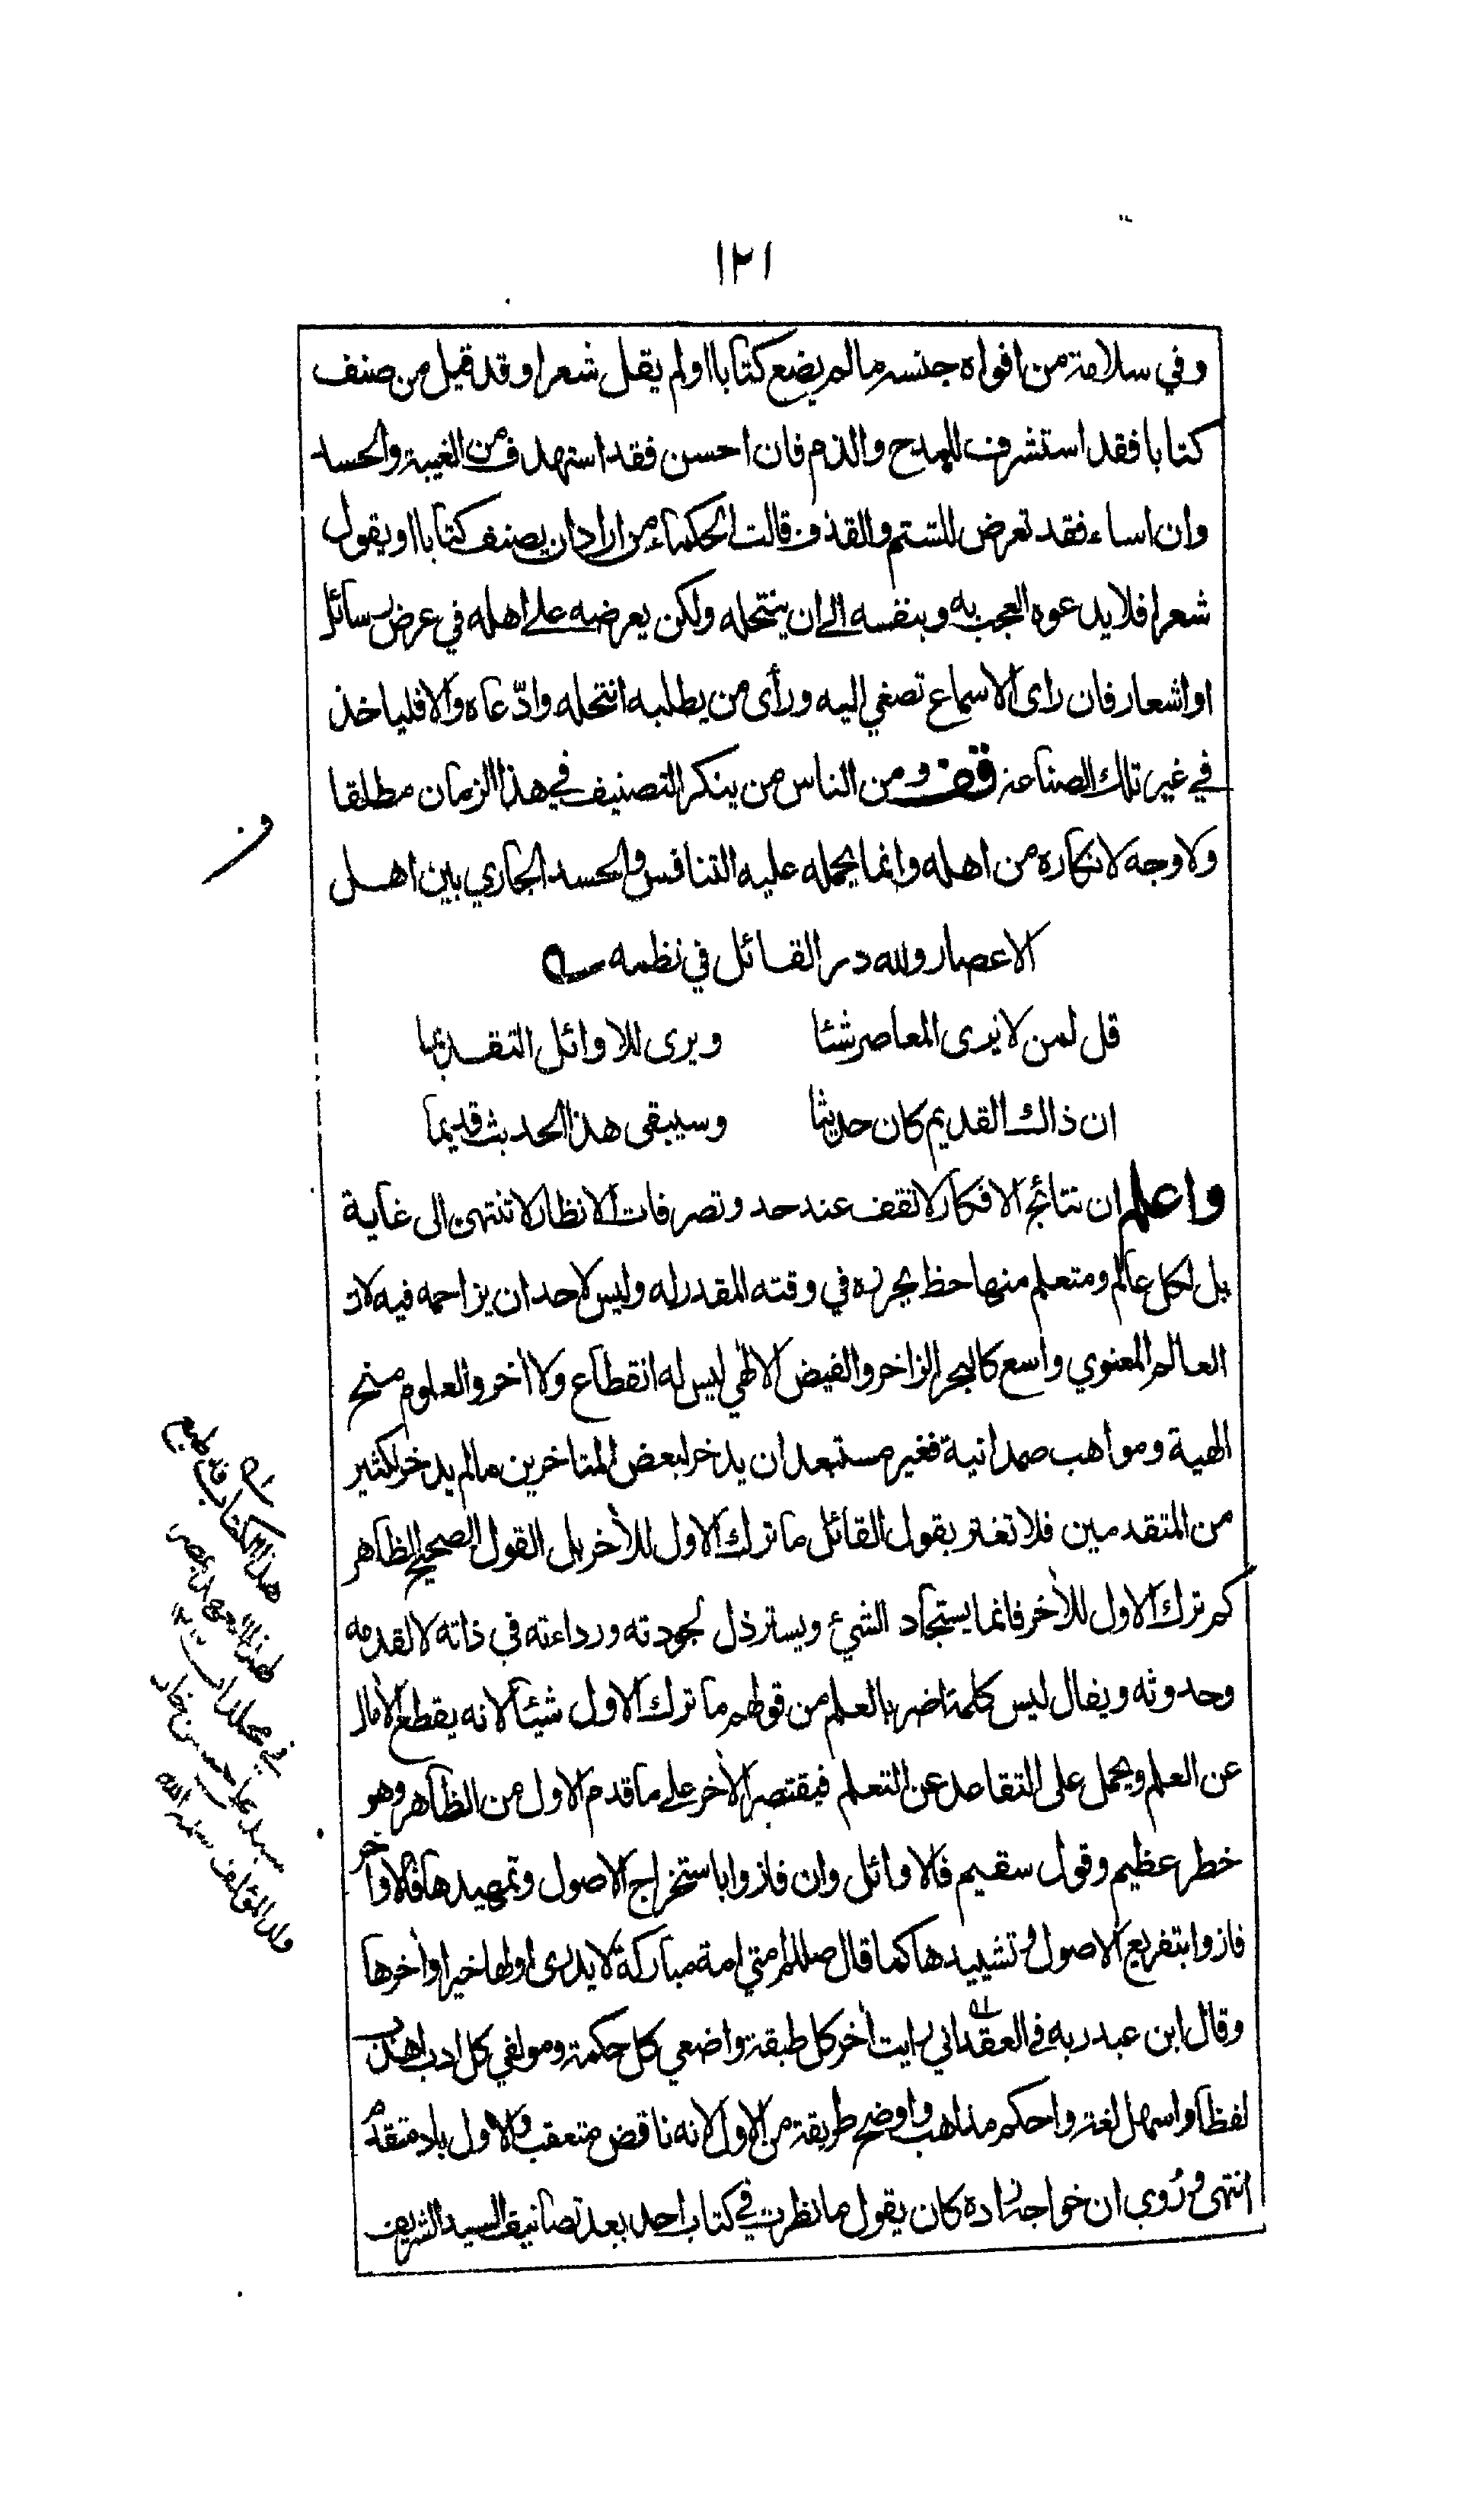 ١٢١
وفي سلامة من افواه جنسه ما لم يضع كتابا او لم يقل شعرا وقد قيل من صنف
كتابا فقد استشرف للمدح والذم فان احسن فقد استهدف من الغيبة والحسد
وان اساء فقد تعرض للشتم والقذف قالت الحكماء من اراد ان يصنف كتابا او يقول
شعرا فلا يدعوه العجب به وبنفسه الى ان ينتحله ولكن يعرضه على اهله في عرض رسائل
او اشعار فان راى الاسماع تصغي اليه ورأى من يطلبه انتحله وادّعاه والا فلياخذ
في غير تلك الصناعة قف ومن الناس من ينكر التصنيف في هذا الزمان مطلقا
ولا وجه لانكاره من اهله وانما يحمله عليه التنافس والحسد الجاري بين اهل
الاعصار ولله در القائل في نظمه
قل لمن لا يرى المعاصر شئا ويرى للاوائل التقديما
ان ذاك القديم كان حديثا وسيبقى هذا الحديث قديما
واعلم ان نتائج الافكار لا تقف عند حد وتصرفات الانظار لا تنتهى الى غاية
بل لكل عالم ومتعلم منها حظ يحرزه في وقته المقدر له وليس لاحد ان يزاحمه فيه لان
العالم المعنوي واسع كالبحر الزاخر والفيض الالهي ليس له انقطاع ولا اخر والعلوم منح
الهية ومواهب صمدانية فغير مستبعد ان يدخر لبعض المتاخرين ما لم يدخر لكثير
من المتقدمين فلا تغتر بقول القائل ما ترك الاول للأخر بل القول الصحيح الظاهر
كم ترك الاول للأخر فانما يستجاد الشئ ويسترذل لجودته ورداءته في ذاته لا لقدمه
وحدوثه ويقال ليس كلمة اضر بالعلم من قولهم ما ترك الاول شيئا لانه يقطع الأمال
عن العلم ويحمل على التقاعد عن التعلم فيقتصر الأخر على ما قدم الاول من الظاهر وهو
خطر عظيم وقول سقيم فالاوائل وان فازوا باستخراج الاصول وتمهيدها فالاواخر
فازوا بتفريع الاصول وتشييدها كما قال صللم امتي امة مباركة لا يدرى اولها خير او أخرها
وقال ابن عبد ربه في العقد اني رايت أخر كل طبقة واضعي كل حكمة ومولفي كل ادب اهذب
لفظا واسهل لغة واحكم مذاهب واوضح طريقة من الاول لانه ناقض متعقب والاول باد متقدم
انتهى ورُوي ان خواجه زاده كان يقول ما نظرت في كتاب احد بعد تصانيف السيد الشريف
هذا الكتاب قد طبع
في مجلدات
ولد المؤلف سلمه الله